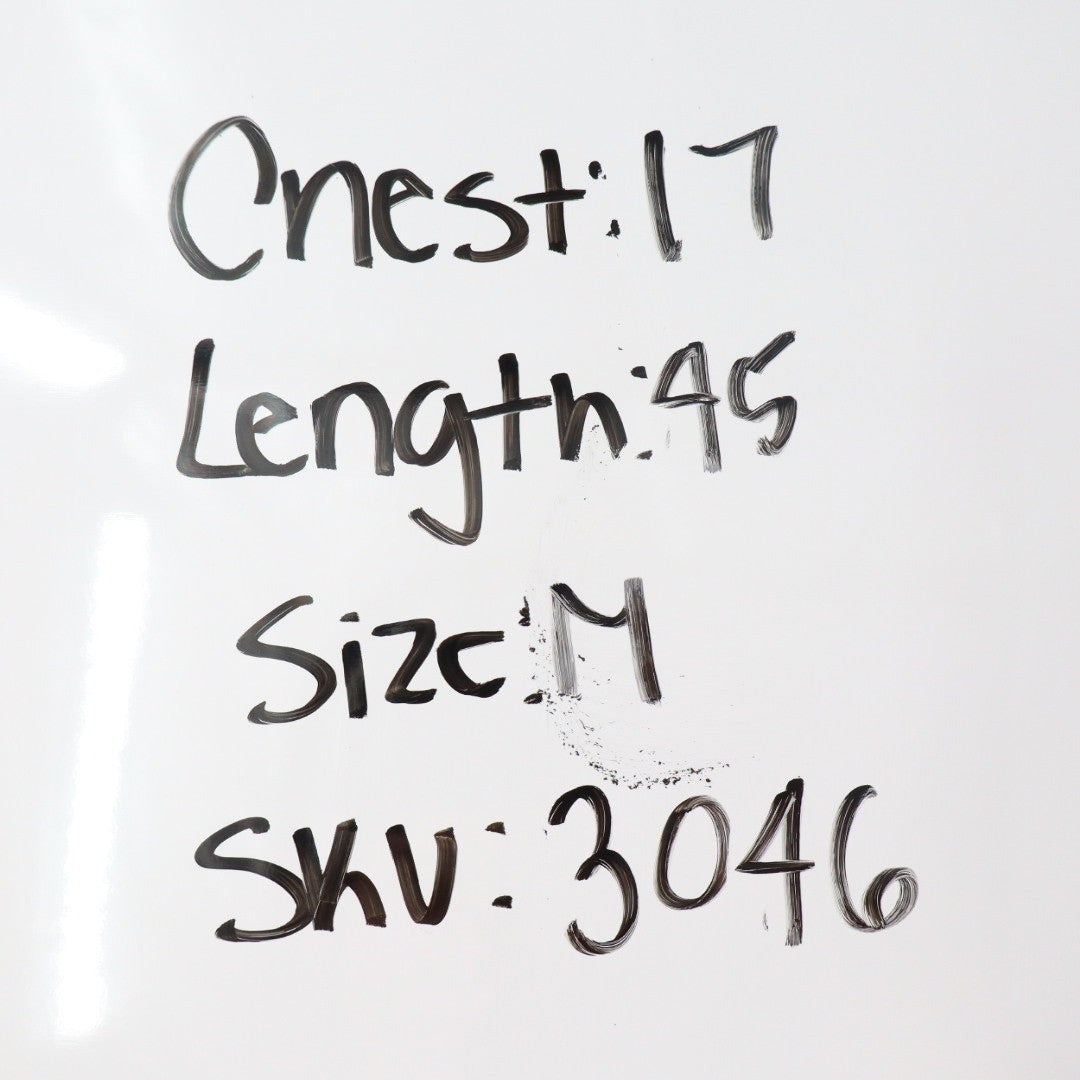 Chest: 17
Length: 45
Size: M
SKU: 3046